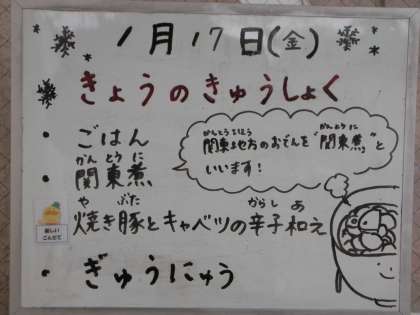 1月17日(金)
きょうのきゅうしょく
・ごはん
かんとうに
・関東煮
やぶた からしあ
焼き豚とキャベツの辛子和え
・ぎゅうにゅう
かんとうちほう かんとうに
関東地方のおでんを"関東煮"と
いいます!
新しい
こんだて